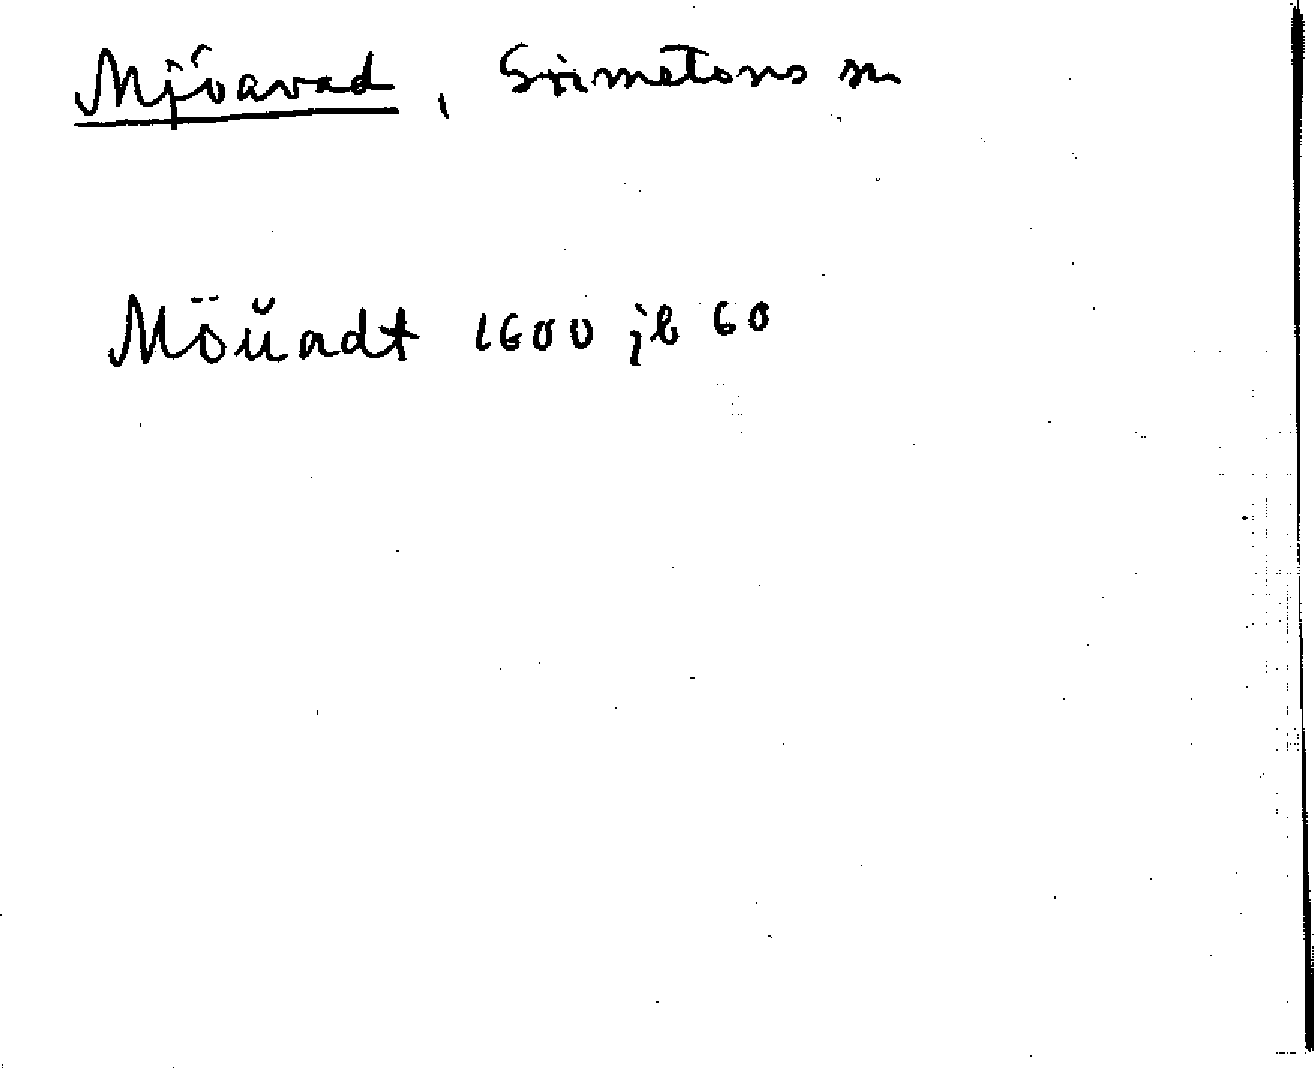 Mjöavad, Grimetons sn
Möŭadt 1600 jb 60